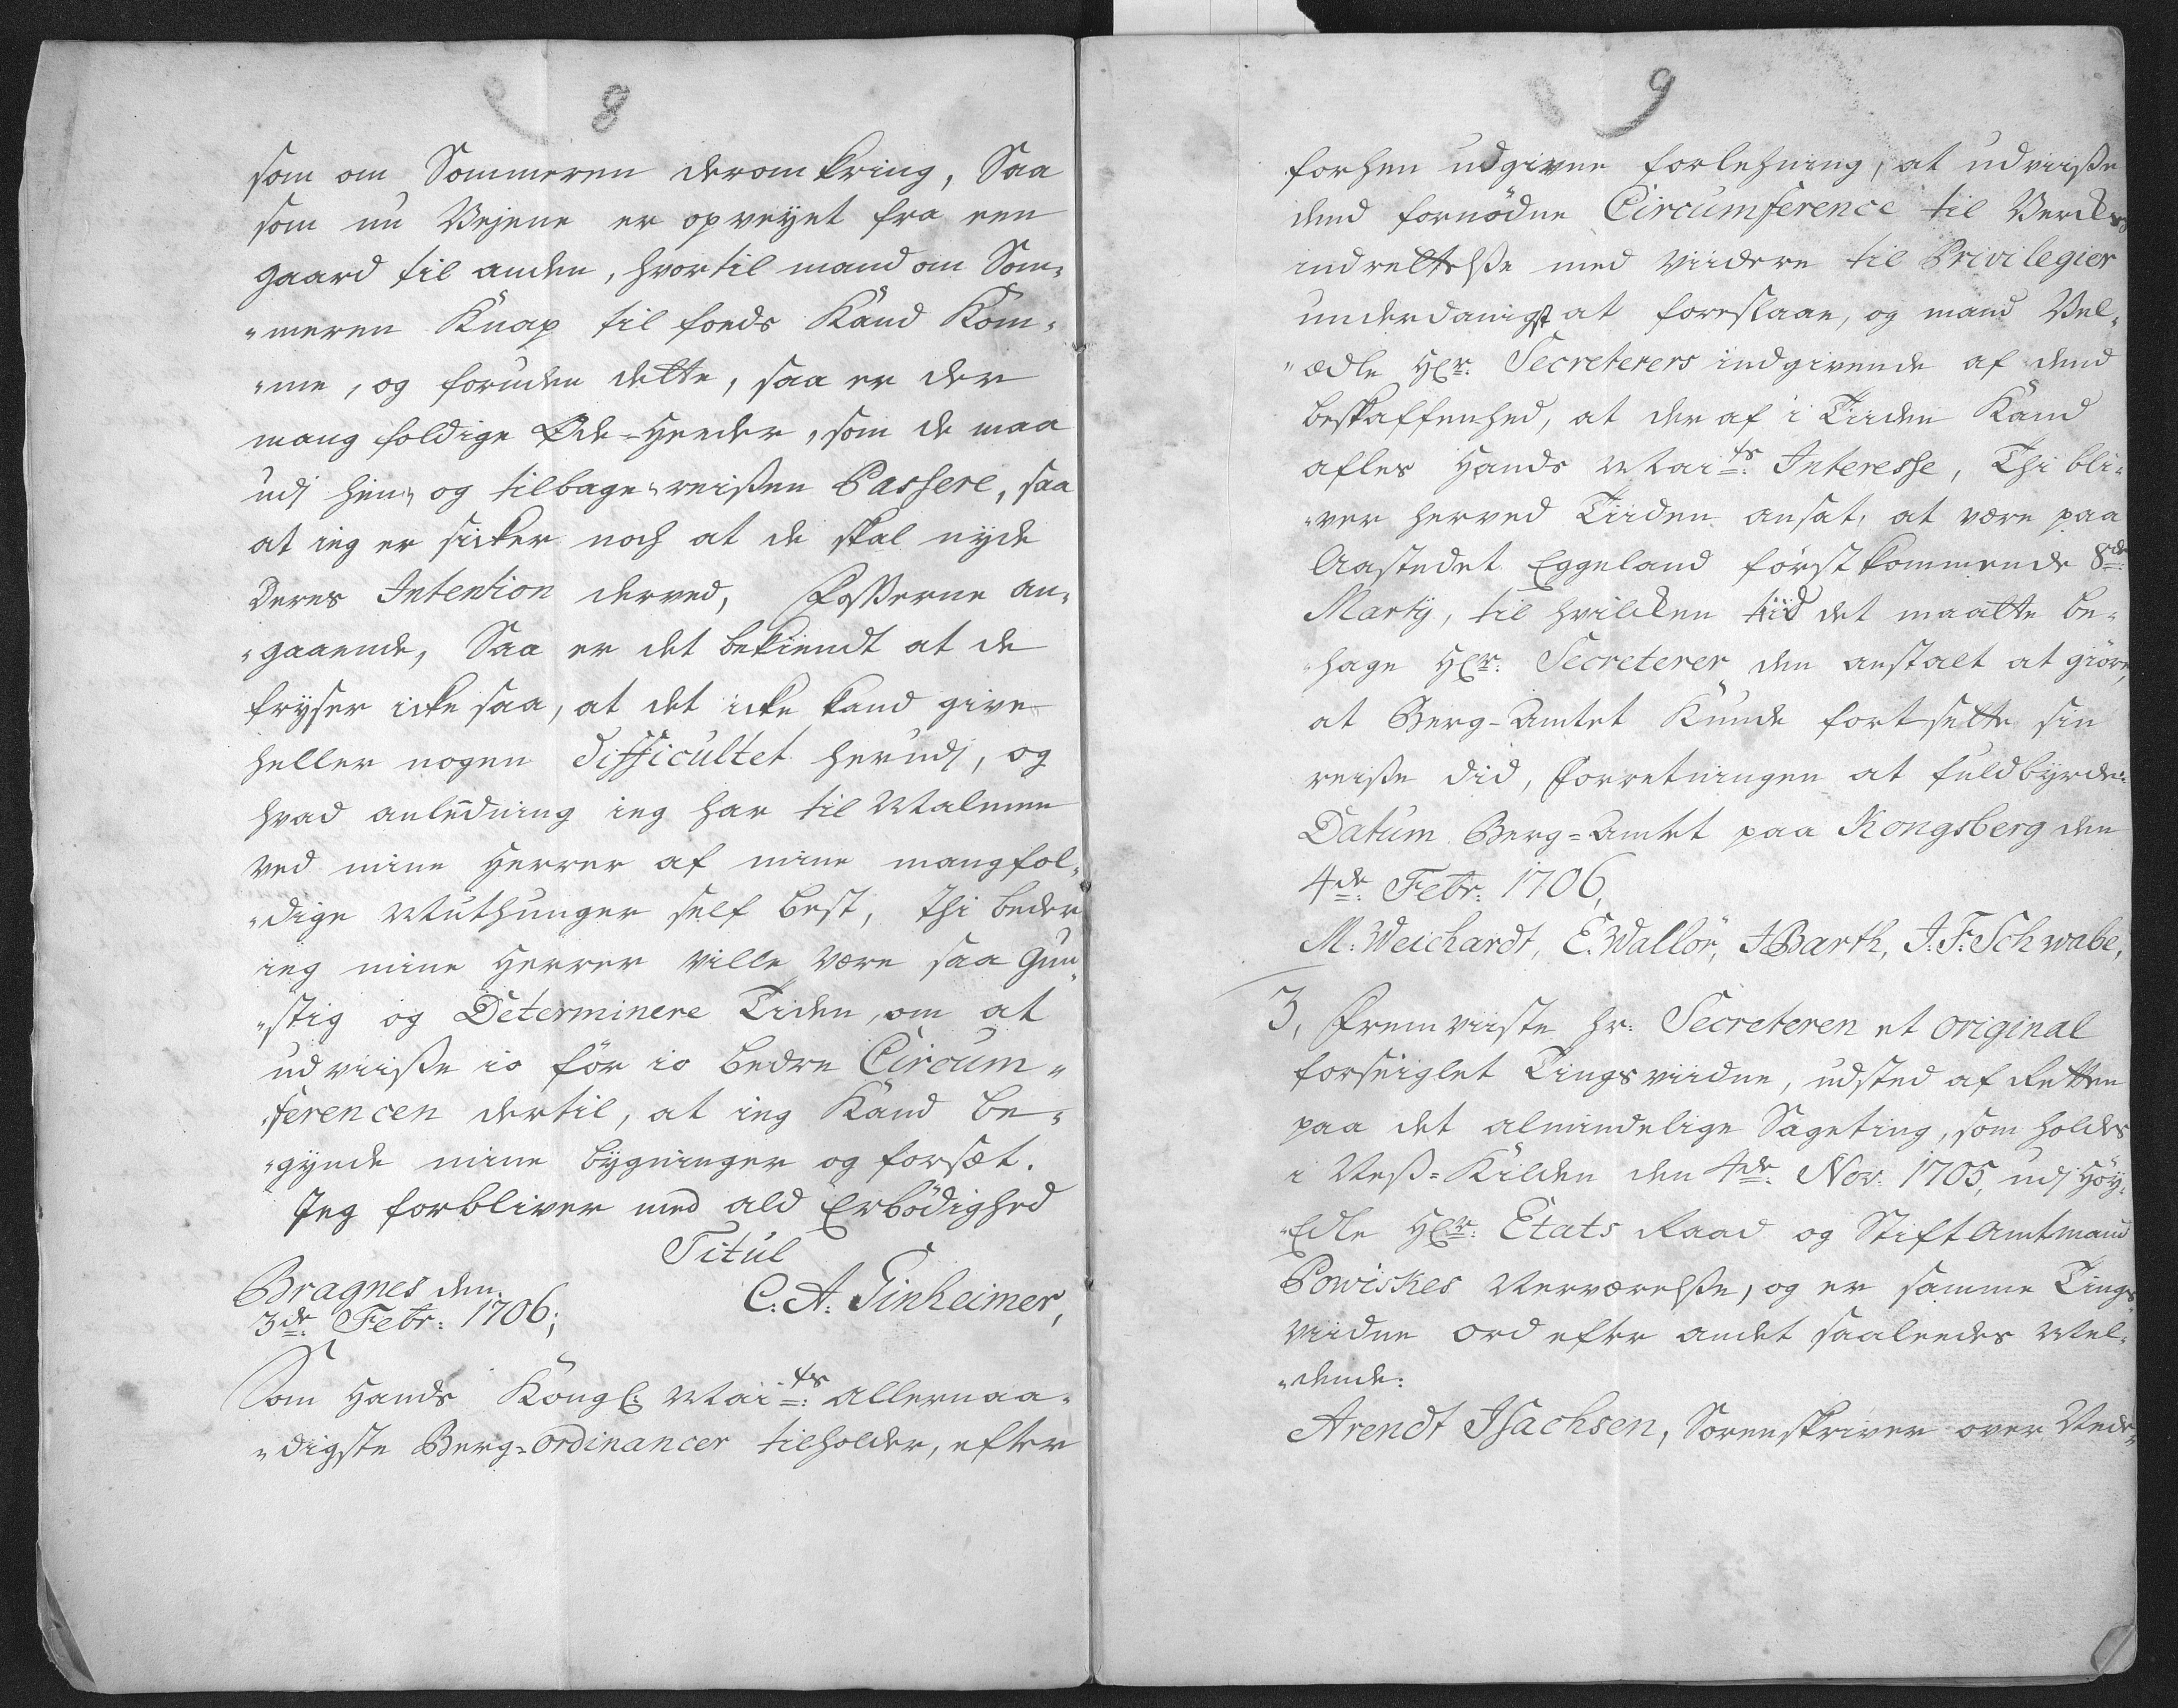 8
som om Sommeren deromkring, Saa
som nu Vejene er opveyet fra een
gaard til anden, hvortil mand om Som„
„meren Knap til foeds Kand Kom„
„me, og foruden dette, saa er der
mangfoldige Øde-Heeder, som de maa
udj hin„ og tilbage„reißen Passere, saa
at ieg er sicker noch at de skal nyde
Deres Intention derved, Foßerne an„
„gaaende, Saa er det bekiendt at de
fryser icke saa, at det icke kand give
heller nogen Difficultet herudj, og
hvad anledning ieg har til Malmen
ved mine Herrer af mine mangfol„
„dige Muthunger self best, thi beder
ieg mine Herrer ville være saa Gun„
„stig og Determinere Tiden, om at
udviiße io før io bedre Circum„
„ferencen dertil, at ieg Kand be„
„gynde mine bygninger og forsæt.
Jeg forbliver med ald Erbödighed
Titul
Bragnes den
3de Febr: 1706;
C. A. Pinheimer,
Som Hands Kongl: Maits: allernaa„
„digste Berg=Ordinancer tilholder, efter
9
forhen udgivne forlehning, at udviiße
dend fornödne Circumference til Verckes
indrettelße med viidere til Privilegier
underdanigst at foreslaae, og mand Vel„
„ædle Hr: Secreterers indgivende af dend
beskaffenhed, at der af i Tiiden Kand
afles Hands Maits: Interesse, Thi bli„
„ver herved Tiiden ansat, at være paa
Aastedet Eggeland förstkommende 8de
Martij, til hvilcken tiid det maatte be„
„hage Hr: Secreterer den anstalt at giöre,
at Berg-Amtet Kunde fortsette sin
reiße did, Forretningen at fuldbyrde:
Datum Berg=Amtet paa Kongsberg den
4de: Febr: 1706,
M: Weichardt, E. Wallör, J Barth, J. F. Schwabe,
3, Fremviiste hr: Secreteren et original
forseiglet Tingsviidne, udsted af Retten
paa det almindelige Sageting, som holdes
i Neß=Kilden den 4de: Nov: 1705, udj Höy„
„Edle Hr: Etats Raad og StiftAmtmand
Powiskes Nerværelße, og er samme Tings„
viidne ord efter andet saaleedes Mel„
„dende:
Arendt Isachsen, Sorenskriver over Nede„